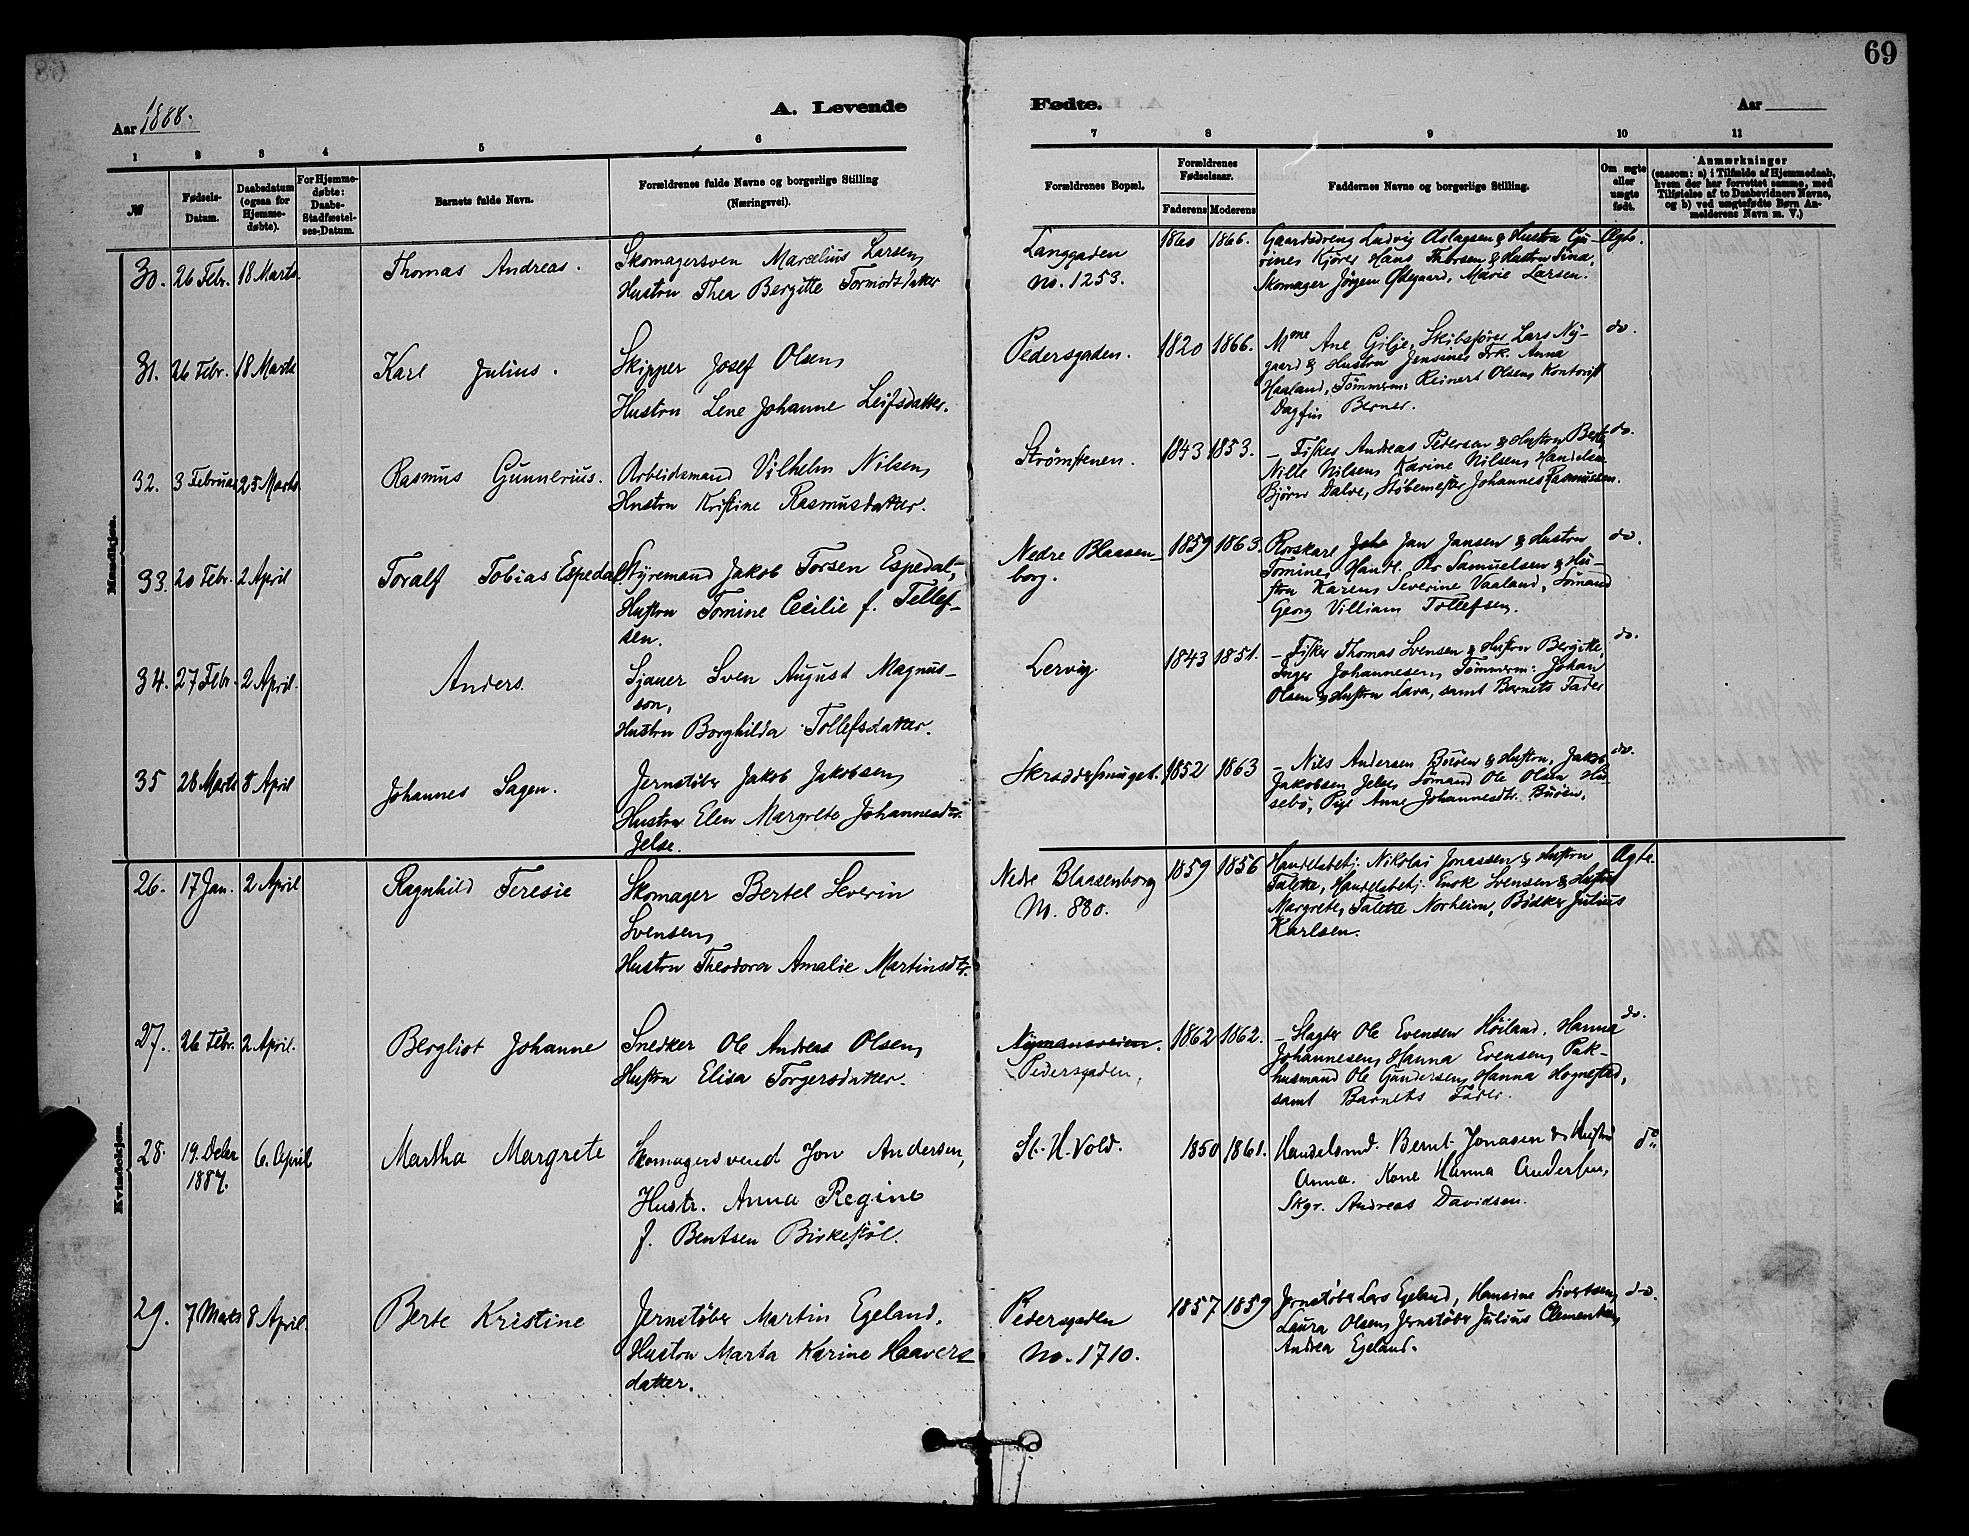 69
Aar 1888.
A. Levende
Fødte.
Aar
1 2 3 4 5 6
7 8 9 10 11
№
Fødsels-
Datum.
Daabsdatum
(ogsaa for
Hjemme-
døbte).
For Hjemme-
døbte:
Daabs-
Stadfæstel-
ses-Datum.
Barnets fulde Navn.
Forældrenes fulde Navne og borgerlige Stilling
(Næringsvei).
Forældrenes Bopæl.
Forældrenes
Fødselsaar.
Faderens Moderens
Faddernes Navne og borgerlige Stilling.
Om ægte
eller
uægte
født.
Anmærkninger
(saasom: a) i Tilfælde af Hjemmedaab,
hvem der har forrettet samme, med
Tilføielse af to Daabsvidners Navne,
og b) ved uægtefødte Børn An-
melderens Navn m. V.)
Mandkjøn.
30. 26 Febr. 18 Marts. Thomas Andreas.
Skomagersven Marcelius Larsen,
Hustru Thea Bergitte Tormodsdatter
Langgaden
No. 1253.
1860 1866.
Gaardsdreng Ludvig Aslagsen & Hustru
Kjøre Hans Thorsen & Hustru Sina,
Skomager Jørgen Ødegaard, Marie Larsen.
Ægte.
31. 26 Febr. 18 Marts Karl Julius.
Skipper Josef Olsen,
Hustru Lene Johanne Leifsdatter.
Pedersgaden.
1820 1866.
Mme Ane Gilje, Skibsfører Lars Ny-
gaard & Hustru Jensine, Frk. Anna
Haaland, Tømmerm: Reinert Olsen, Kontorist
Dagfin Berner.
do.
32. 3 Februar 25 Marts Rasmus Gunnerius.
Arbeidsmand Vilhelm Nilsen,
Hustru Kristine Rasmusdatter.
Strømstenen.
1843 1853.
- Fisker Andreas Pedersen & Hustru Berte,
Nille Nilsen, Karine Nilsen,
Bjørn Dalve, Støbemester Johannes Rasmussen.
do.
33. 20 Febr. 2 April Toralf Tobias Espedal
Styremand Jakob Torsen Espedal,
Hustru Tomine Cecilie f. Tellef-
sen.
Nedre Blaasen-
borg.
1859 1863.
Rorskarl Jan Jansen & Hustru
Tomine, Handl. Samuelsen & Hu-
stru Karen, Severine Vaaland, Sømand
Georg Villiam Tollefsen.
do.
34. 27 Febr. 2 April. Anders.
Sjauer Sven August Magnus-
son,
Hustru Borghilda Tollefsdatter.
Lervig
1843 1851.
- Fisker Thomas Svensen & Hustru Bergitte,
Inger Johannesen, Tømmerm: Johan
Olsen & Hustru Lava, samt Barnets Fader
do.
35 28 Marts 8 April Johannes Sagen.
Jernstøber Jakob Jakobsen,
Hustru Elen Margrete Johannesdtr.
Jelse.
Skraddersmuget.
1852 1863
- Nils Andersen Buøen & Hustru, Jakob
Jakobsen Jelse, Sømand Ole Olsen Hu-
sebø, Pige Anne Johannesdtr. Buøen.
do.
Kvindekjøn.
26. 17 Jan. 2 April Ragnhild Teresie
Skomager Bertel Severin
Svensen,
Hustru Theodora Amalie Martinsdtr.
Nedre Blaasenborg
No. 880.
1859 1856
Handelsbetj. Nikolai Jonassen & Hustru
Talette, Handelsbetj. Enok Svensen & Hustru
Margrete, Talette Norheim, Bødker Julius
Karlsen.
Ægte.
27. 26 Febr. 2 April. Bergliot Johanne
Snedker Ole Andreas Olsen,
Hustru Elisa Torgersdatter.
Nymansveien.
Pedersgaden,
1862 1862.
- Slagter Ole Evensen Høiland, Hanna
Johannesen, Hanna Evensen, Pak-
husmand Ole Gundersen, Hanna Hognestad,
samt Barnets Fader.
do.
28. 19. Decbr 6. April Martha Margrete
1887.
Skomagersvend Jon Andersen,
Hustr. Anna Regine
f. Bentsen Birkestøl.
St. H. Vold.
1850 1861.
Handelsmd. Bernt Jonasen & Hustru
Anna. Kone Hanna Andersen,
Skgr. Andreas Davidsen.
do
29. 7 Marts 8 April Berte Kristine
Jernstøber Martin Egeland,
Hustru Marta Karine Haavers-
datter.
Pedersgaden
No. 1710.
1857 1859
Jernstøber Lars Egeland, Hansine Sivertsen,
Laura Olsen, Jernstøber Julius Clementsen,
Andrea Egeland.
do.